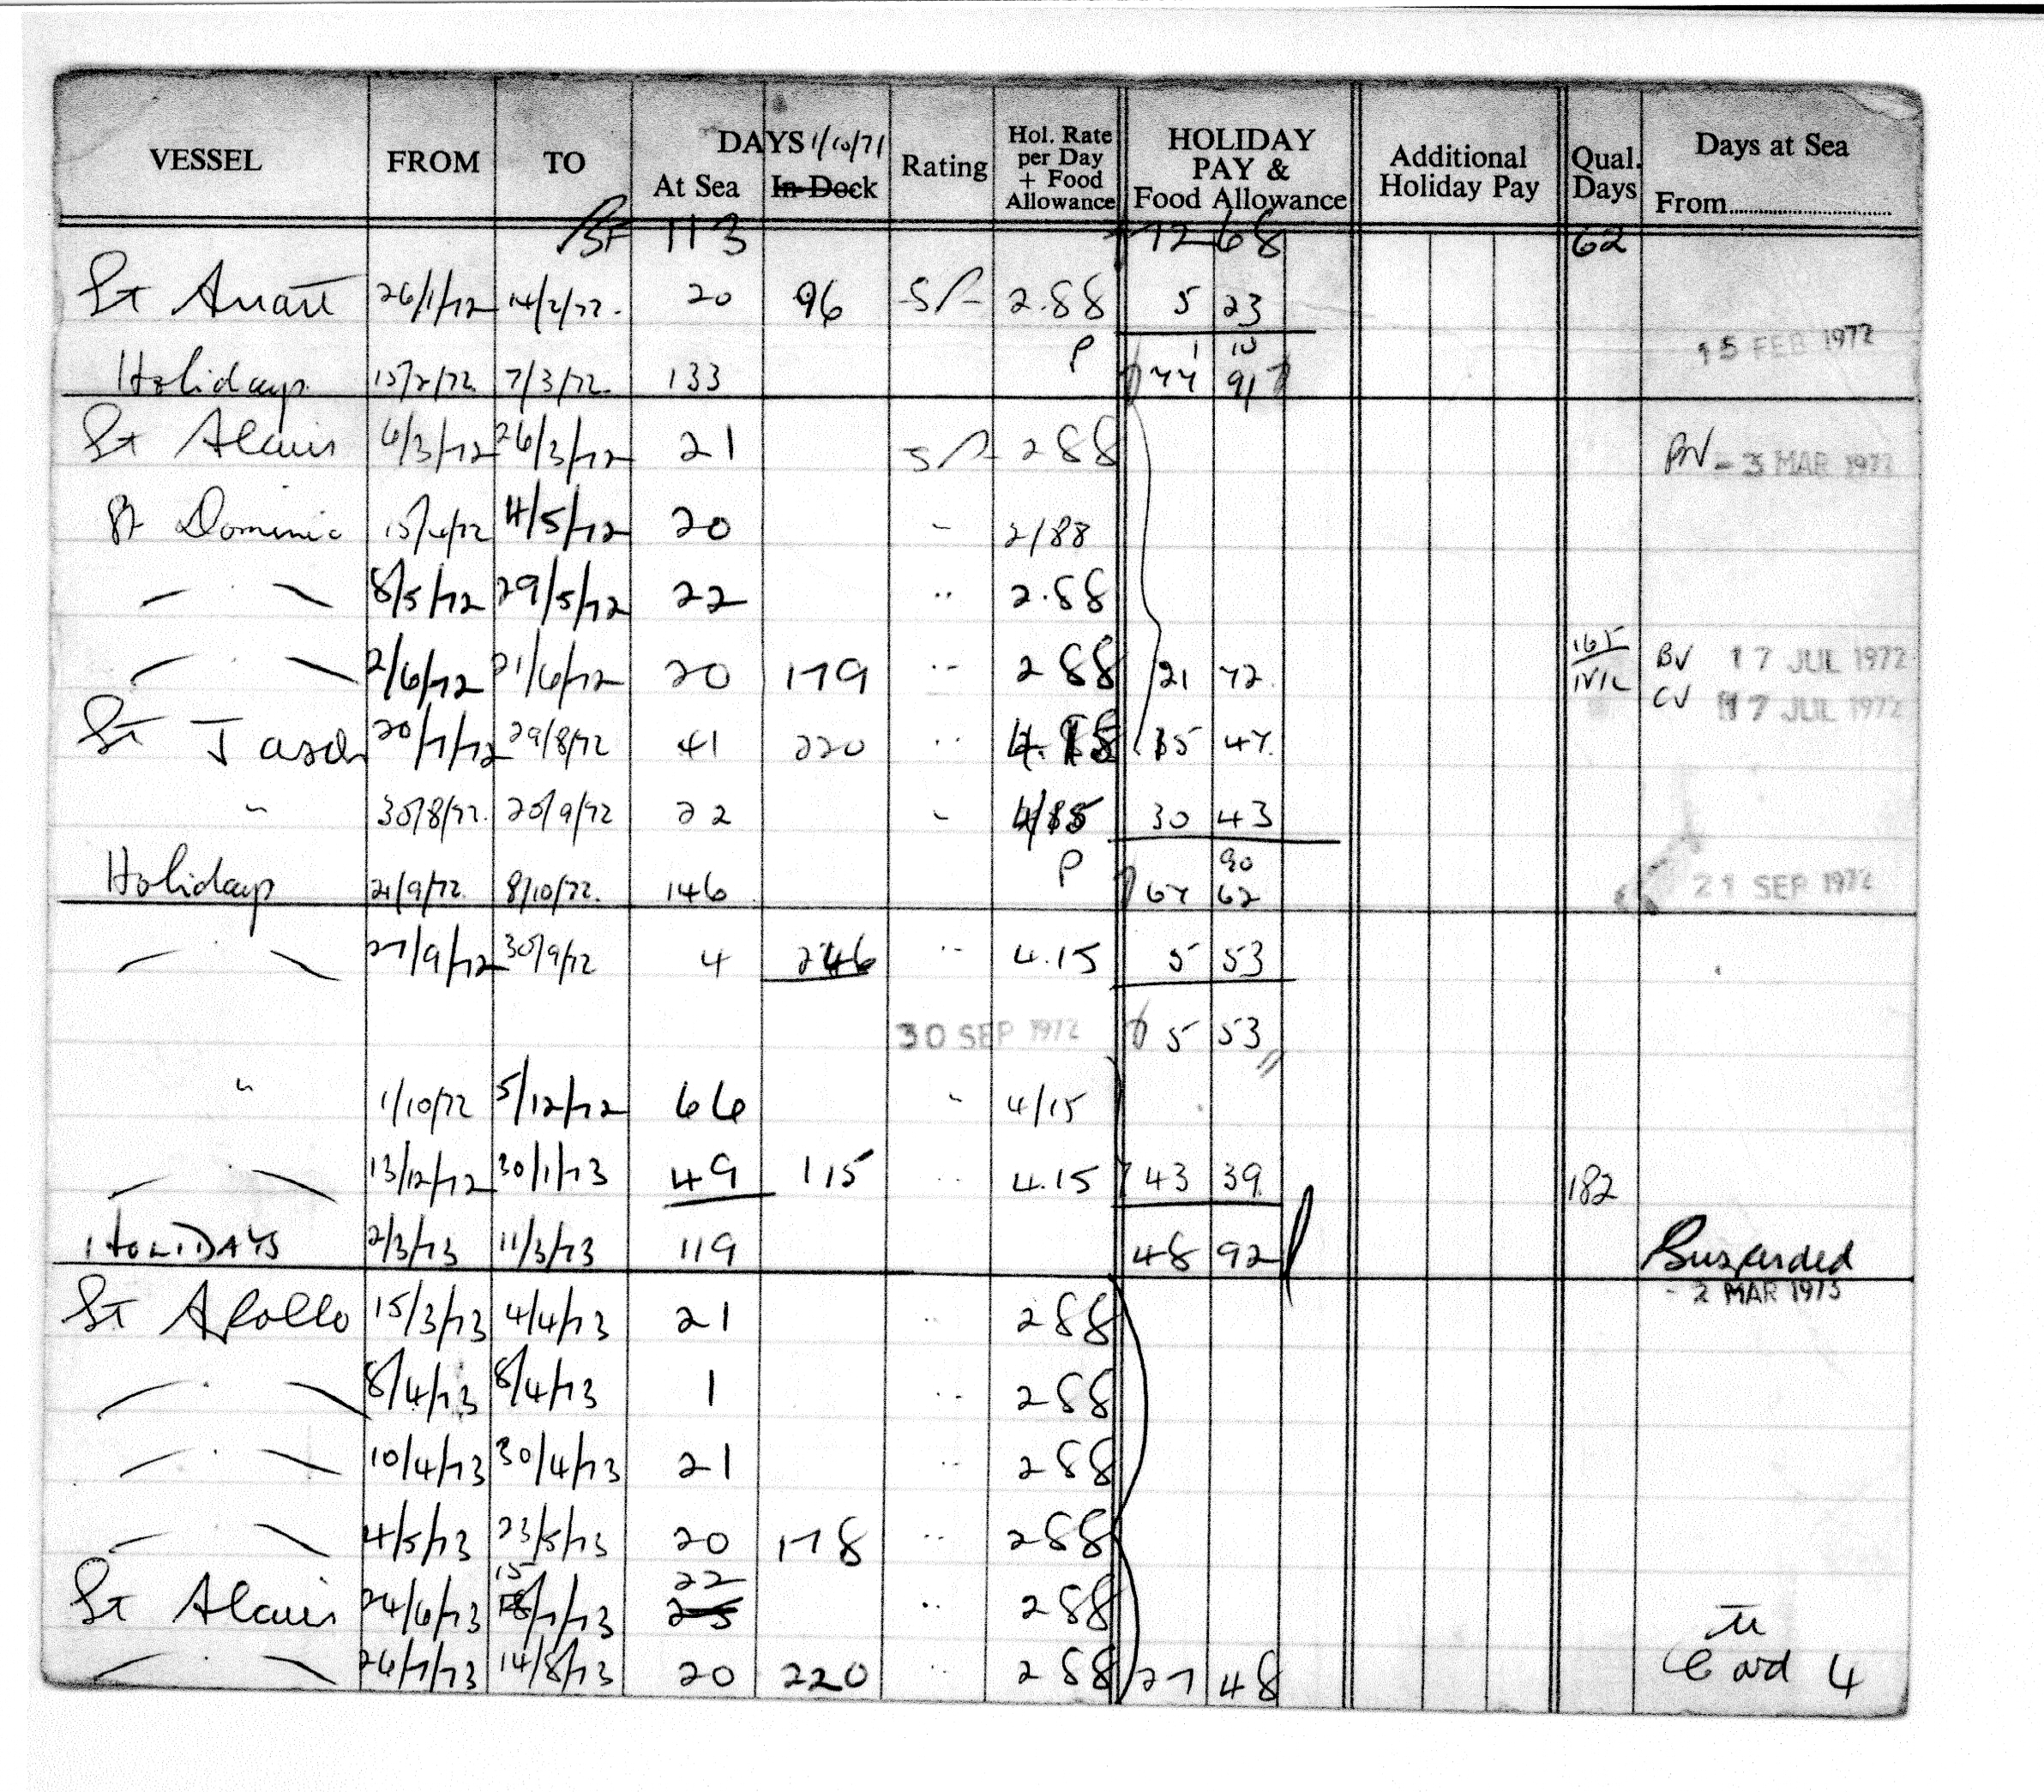 VESSEL FROM TO DAYS 1/10/71 At Sea In Dock Rating Hol. Rate per Day + Food Allowance HOLIDAY PAY & Food Allowance Additional Holiday Pay Qual. Days Days at Sea From
BF 113 72 68 62
St 26/1/72 14/2/72. 20 96 S/- 2.88 5 23
15 FEB 1972
P 1 10
Holidays 15/2/72. 7/3/72. 133 77 91
St Alcuin 6/3/72 26/3/72 21 S/- 2 88 BV - 3 MAR 1972
St Dominic 15/4/72 4/5/72 20 " 2/88
" 8/5/72 29/5/72 22 " 2.88
" 2/6/72 21/6/72 20 179 " 2 88 21 72. 165 BV 17 JUL 1972
CV 17 JUL 1972
St Jason 20/7/72 29/8/72 41 220 " 4.15 15 47.
" 30/8/72. 20/9/72 22 " 4/15 30 43
P 90
Holidays 21/9/72. 8/10/72. 146 67 62 21 SEP 1972
" 27/9/72 30/9/72 4 246 " 4.15 5 53
30 SEP 1972 5 53
" 1/10/72 5/12/72 66 " 4/15
" 13/12/72 30/1/73 49 115 " 4.15 43 39 182
HOLIDAYS 2/3/73 11/3/73 119 48 92 Suspended
- 2 MAR 1973
St Apollo 15/3/73 4/4/73 21 " 2 88
" 8/4/73 8/4/73 1 " 2 88
" 10/4/73 30/4/73 21 " 2 88
" 4/5/73 23/5/73 20 178 " 2 88
St Alcuin 24/6/73 15/7/73 22 25 " 2 88
" 26/7/73 14/8/73 20 220 " 2 88 27 48 Card 4